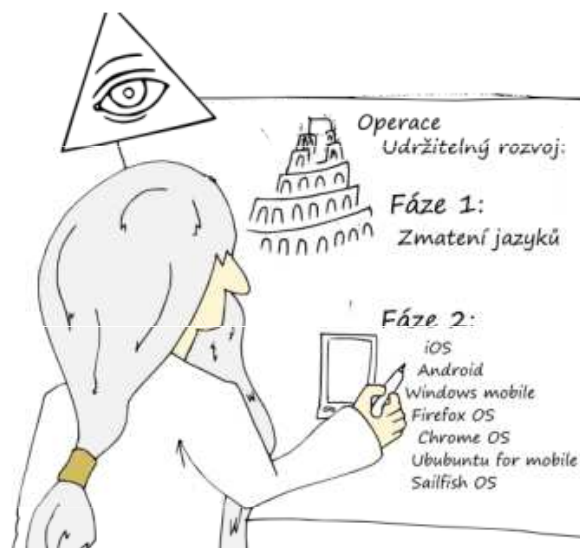 Operace
Udržitelný rozvoj:
Fáze 1:
Zmatení jazyků
Fáze 2:
iOS
Android
Windows mobile
Firefox OS
Chrome OS
Ububuntu for mobile
Sailfish OS